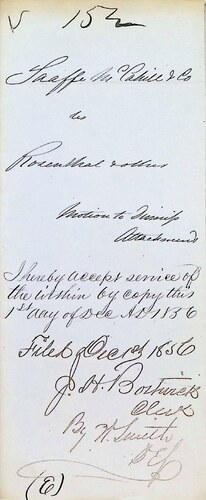 152
Saaffe McCahill & Co
vs
Rosenthal & others
Motion to Dismiss
Attachment
I hereby accept service of
the within by copy this
1st day of Dec AD 1856
Filed Dec 1st 1856
J. H. Bostwick
Clerk
By W. Smith
(E)